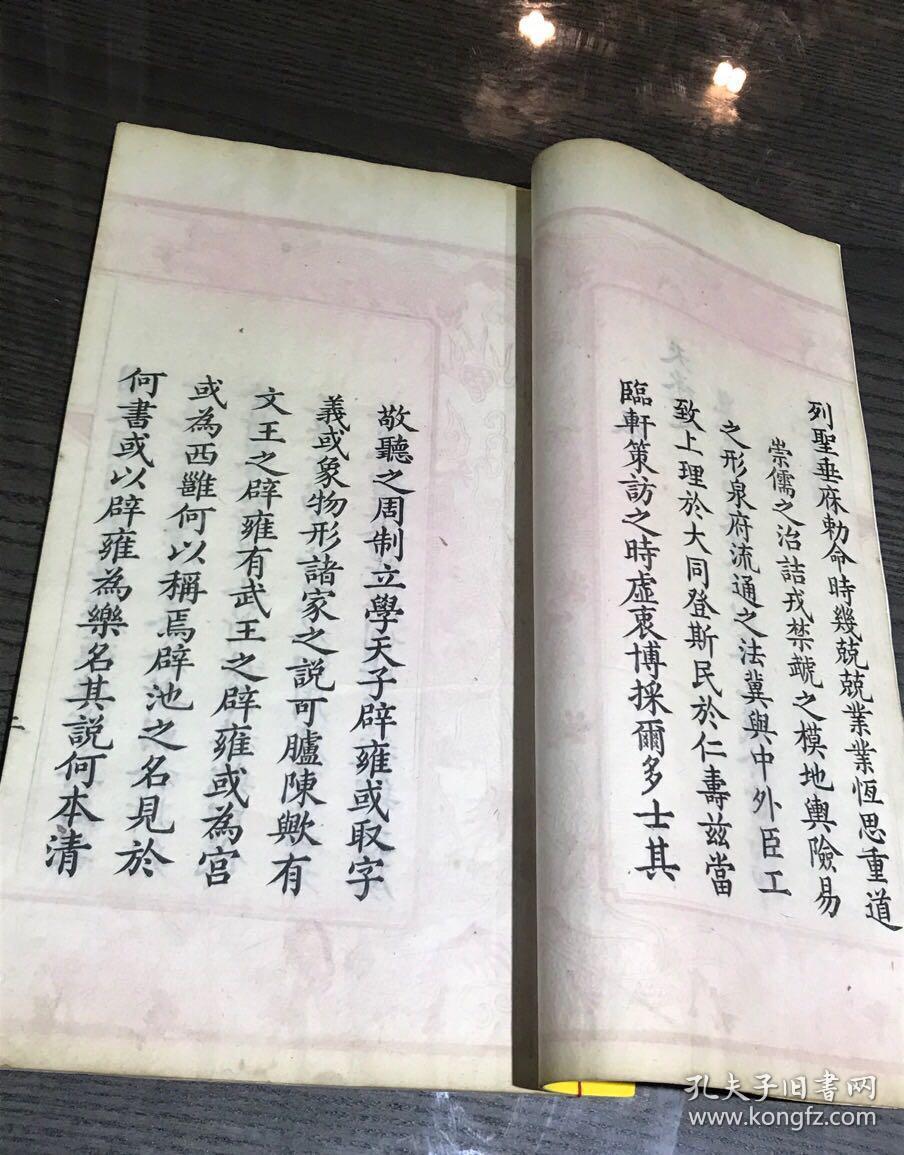 列聖垂庥勅命時幾兢兢業業恆思重道
崇儒之治詰戎禁虣之模地輿險易
之形泉府流通之法冀與中外臣工
致上理於大同登斯民於仁壽兹當
臨軒策訪之時虛衷博採爾多士其
敬聽之周制立學天子辟雍或取字
義或象物形諸家之説可臚陳歟有
文王之辟雍有武王之辟雍或為宫
或為西雝何以稱焉辟池之名見於
何書或以辟雍為樂名其説何本清
二
孔夫子旧书网
www.kongfz.com